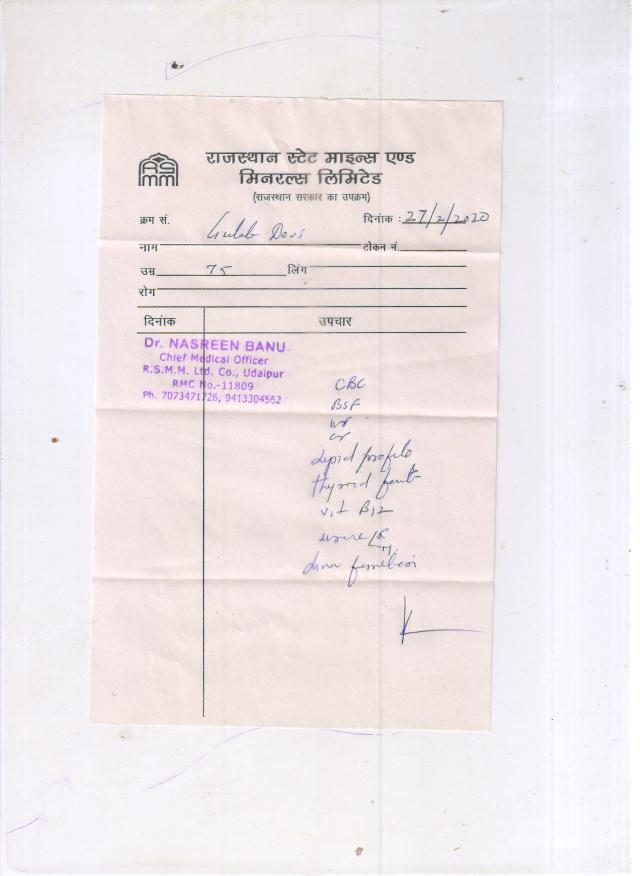 RSMM
राजस्थान स्टेट माइन्स एण्ड
मिनरल्स लिमिटेड
(राजस्थान सरकार का उपक्रम)
क्रम सं. दिनांक : 27/2/2020
नाम Gulab Devi टोकन नं.
उम्र 75 लिंग
रोग
दिनांक उपचार
Dr. NASREEN BANU
Chief Medical Officer
R.S.M.M. Ltd. Co., Udaipur
RMC No.-11809
Ph. 7073471726, 9413304562
CBC
BSF
Lipid profile
thyroid
vit B12
urine